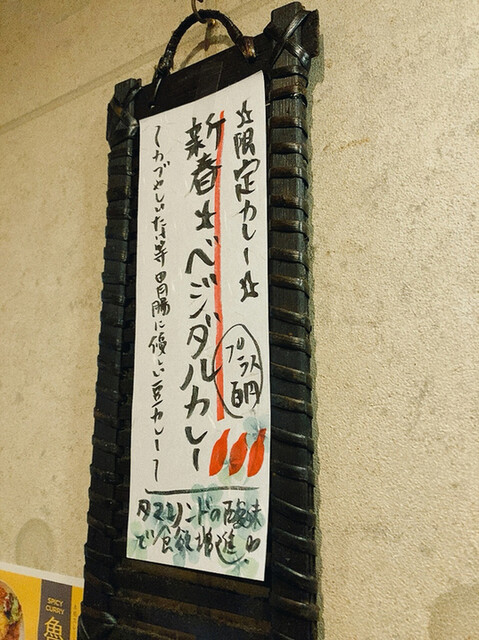 ☆限定カレー☆
新春☆ベジダルカレー
プラス百円
〜カブやしいたけ等胃腸に優しい豆カレー〜
タマリンドの酸味
で食欲増進!!
SPICY
CURRY
魯